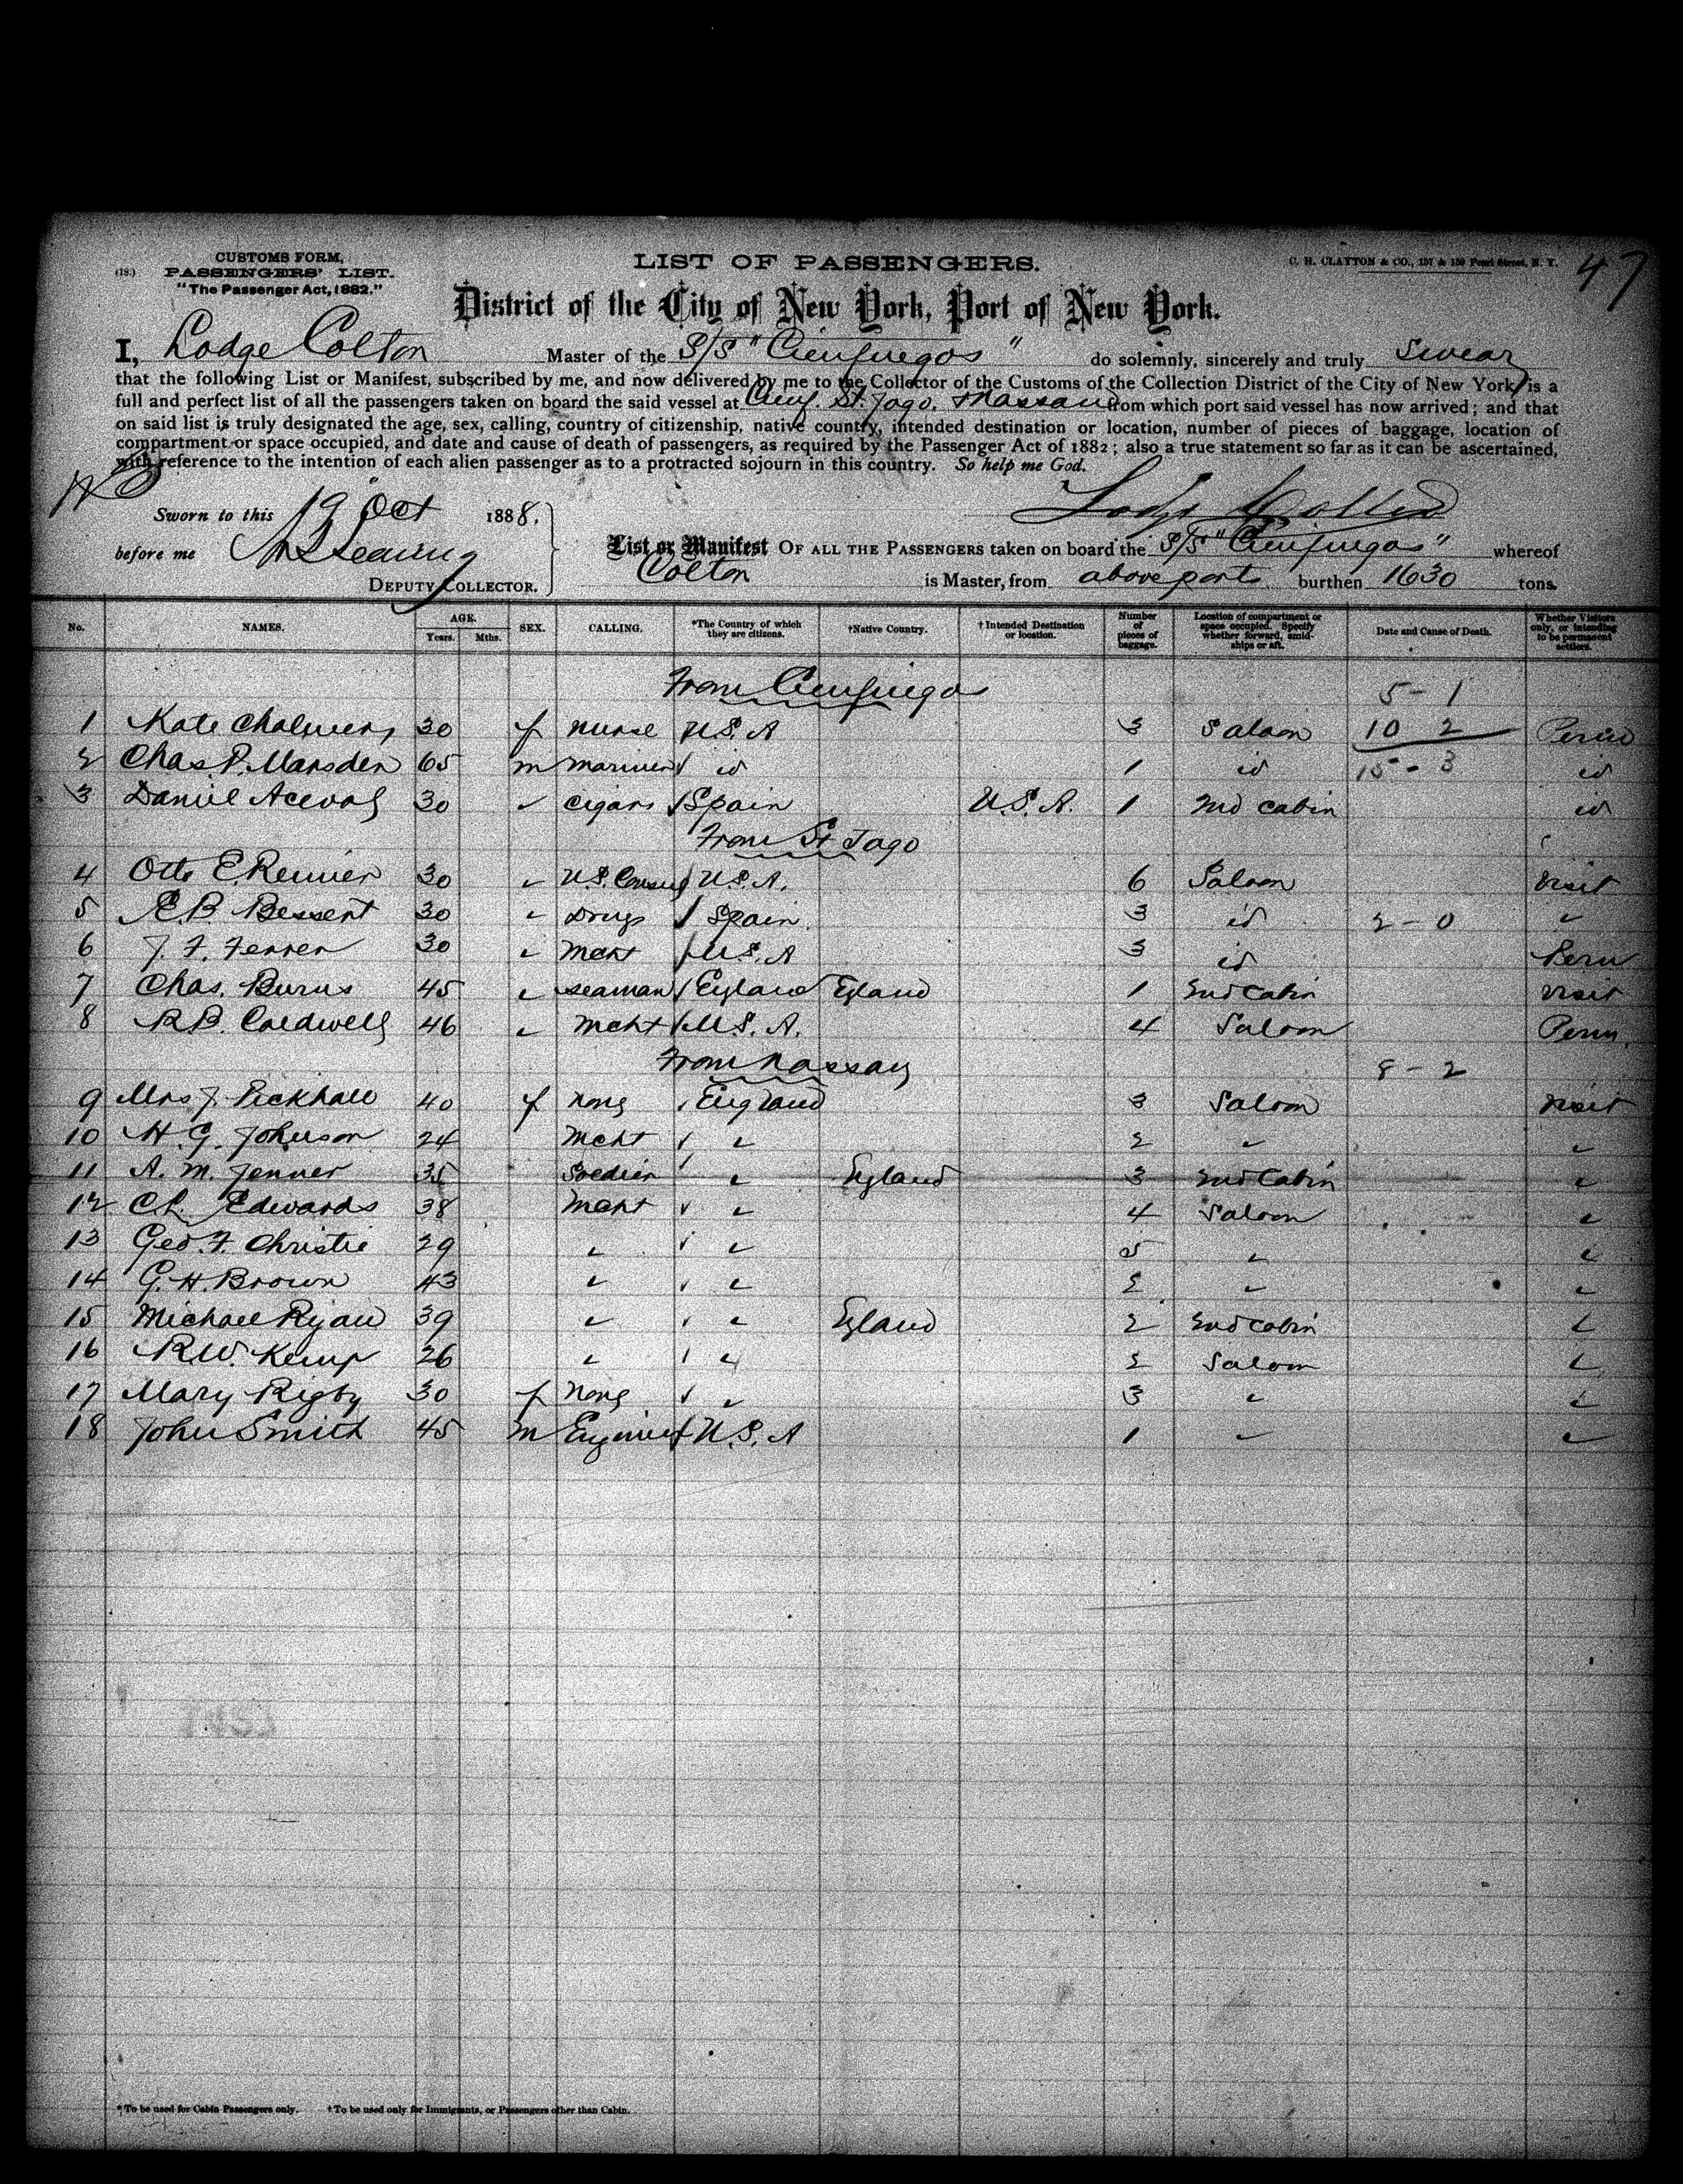 47
CUSTOMS FORM,
(18.) PASSENGERS' LIST.
"The Passenger Act, 1882."
LIST OF PASSENGERS.
C. H. CLAYTON & CO., 157 & 159 Pearl Street, N. Y.
District of the City of New York, Port of New York.
I, Lodge Colton Master of the S/S "Cienfuegos" do solemnly, sincerely and truly swear
that the following List or Manifest, subscribed by me, and now delivered by me to the Collector of the Customs of the Collection District of the City of New York, is a
full and perfect list of all the passengers taken on board the said vessel at Cienf. St. Jago. Nassau from which port said vessel has now arrived; and that
on said list is truly designated the age, sex, calling, country of citizenship, native country, intended destination or location, number of pieces of baggage, location of
compartment or space occupied, and date and cause of death of passengers, as required by the Passenger Act of 1882; also a true statement so far as it can be ascertained,
with reference to the intention of each alien passenger as to a protracted sojourn in this country. So help me God.
Sworn to this 19 Oct 1888. Lodge Colton
before me
DEPUTY COLLECTOR.
List or Manifest OF ALL THE PASSENGERS taken on board the S/S "Cienfuegos" whereof
Colton is Master, from above ports burthen 1630 tons.
No. NAMES. AGE. Years. Mths. SEX. CALLING. *The Country of which they are citizens. †Native Country. †Intended Destination or location. Number of pieces of baggage. Location of compartment or space occupied. Specify whether forward, amidships or aft. Date and Cause of Death. Whether Visitors only, or intending to be permanent settlers.
From Cienfuegos 5 - 1
1 Kate Chalmers 30 f nurse U.S.A 3 Saloon 10 2
2 Chas P. Marsden 65 m mariner id 1 id 15 - 3 id
3 Daniel Aceval 30 " cigars Spain U.S.A. 1 2nd cabin id
From St Jago
4 Otto E. Reimer 30 " U.S. Consul U.S.A. 6 Saloon visit
5 E.B. Bessent 30 " Drugs Spain. 3 id 2 - 0 "
6 J. F. Ferrer 30 " Mcht U.S.A 3 id Perm
7 Chas. Burns 45 " seaman England England 1 2nd Cabin visit
8 R.B. Caldwell 46 " Mcht U.S.A. 4 Saloon Perm.
From Nassau 8 - 2
9 Mrs J. Pickhall 40 f none England 3 Saloon visit
10 H. G. Johnson 24 Mcht " 2 " "
11 A. M. Jenner 35 Soldier " England 3 2nd Cabin "
12 Edwards 38 Mcht " 4 Saloon "
13 Geo. F. Christie 29 " " 5 " "
14 G. H. Brown 43 " " 2 " "
15 Michael Ryan 39 " " England 2 2nd cabin "
16 R.W. Kemp 26 " " 2 Saloon "
17 Mary Rigby 30 f none " 3 " "
18 John Smith 45 m Engineer U.S.A 1 " "
*To be used for Cabin Passengers only. †To be used only for Immigrants, or Passengers other than Cabin.